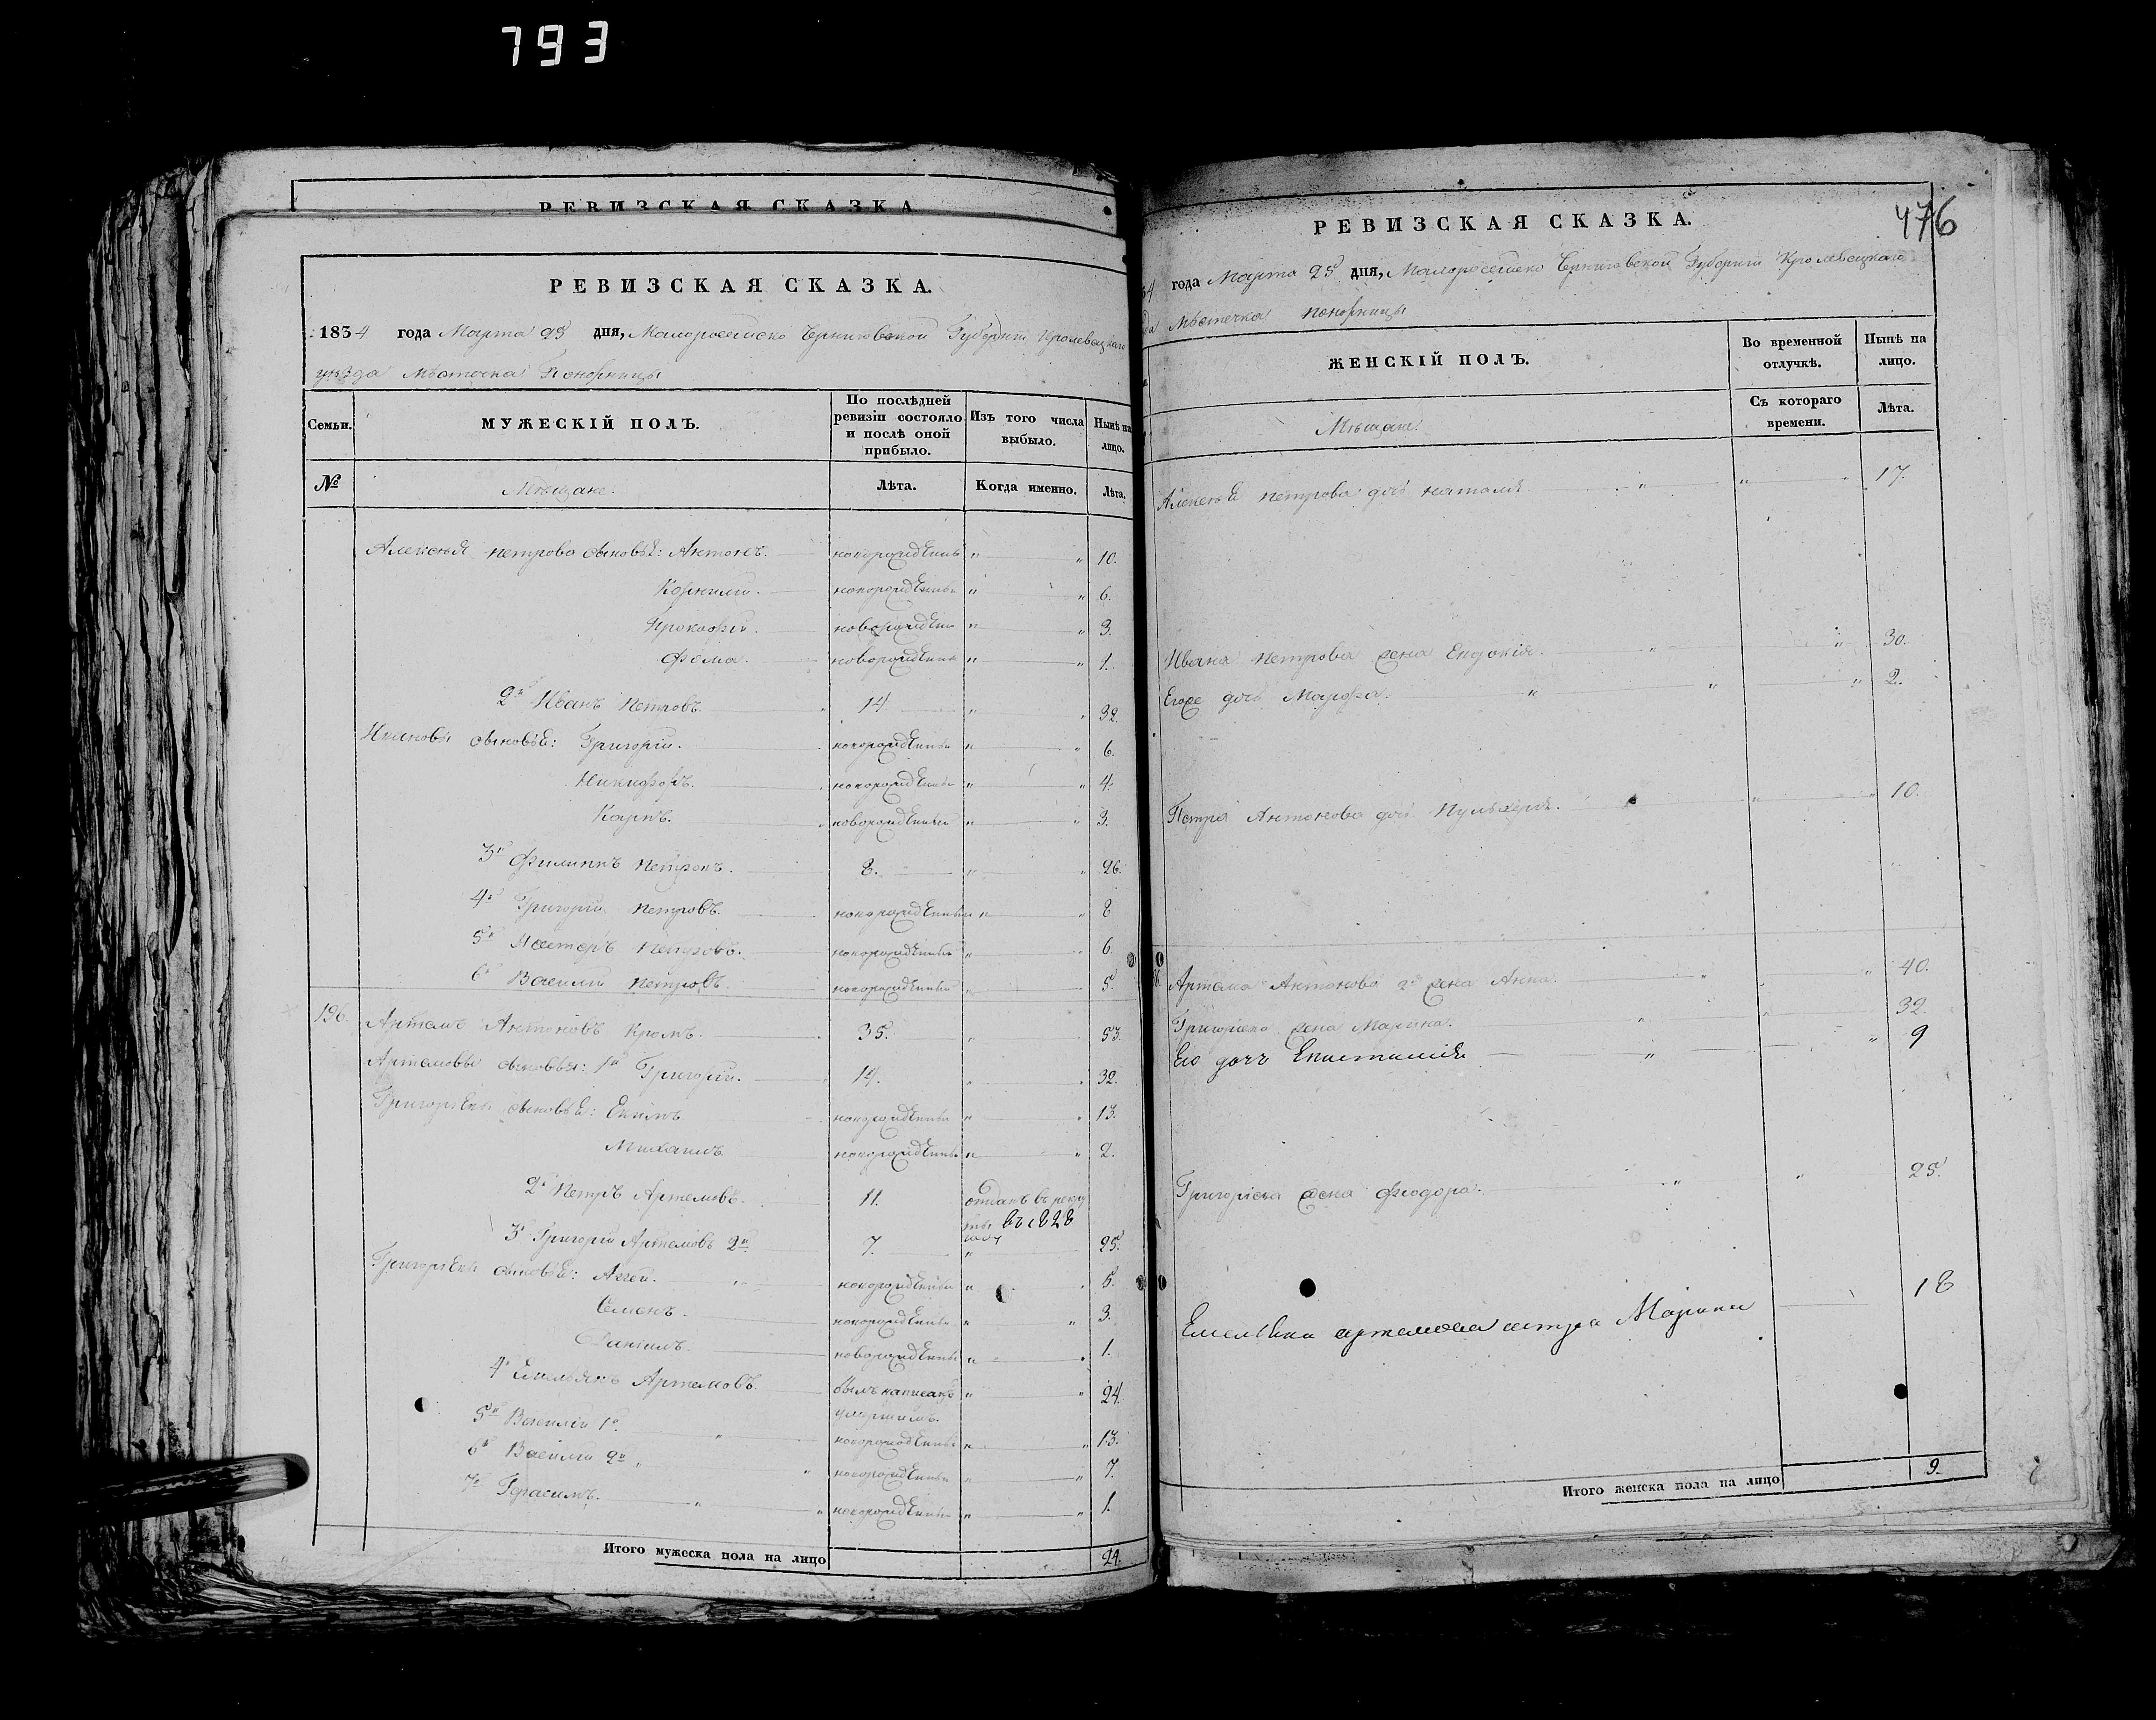 793
РЕВИЗСКАЯ СКАЗКА
РЕВИЗСКАЯ СКАЗКА.
1834 года Марта 25 дня, Малоросейско Черниговской Губернии Кролевецкаго
уезда Местечка Понорницы
Семьи.
МУЖЕСКІЙ ПОЛЪ.
По последней ревизіи состояло и послѣ оной прибыло.
Изъ того числа выбыло.
Нынѣ на лицо.
№
Мещане.
Лѣта.
Когда именно.
Лѣта.
Алексея петрова сыновья: Антонъ. новорожденный " " 10.
Корнилий. новорожденный " " 6.
Прокофій. новорожден " " 3.
Фома. новорожденный " " 1.
2й Иванъ Петровъ 14 " " 32.
Ивановы сыновья: Григорій. новорожденный " " 6.
Никифоръ. новорожденный " " 4.
Карпъ. новорожденный " " 3.
3й Филиппъ Петровъ. 8. " " 26.
4й Григорій Петровъ. новорожденный " " 8
5й Нестеръ Петровъ. новорожденный " " 6.
6й Василий Петровъ. новорожденный " " 5.
196. Артемъ Антоновъ 35. " " 53.
Артемовы сыновья: 1й Григорій. 14. " " 32.
Григорьевы сыновья: Екимъ новорожденный " " 13.
Михаилъ новорожденный " " 2.
2й Петръ Артемовъ. 11. отданъ въ рекру
ты въ 1828
году
3й Григорій Артемовъ 2й 7. " 25.
Григорьевы сыновья: Агей. новорожденный " " 5.
Семенъ. новорожденный " " 3.
Данилъ. новорожденный " " 1.
4й Емельянъ Артемовъ. былъ написанъ " " 24.
умершимъ.
5й Василій 1й. " новорожденный " " 13.
6й Василий 2й " " новорожденный " " 7.
7й Герасимъ. " " новорожденный " " 1.
Итого мужеска пола на лицо 24.
476
РЕВИЗСКАЯ СКАЗКА.
34 года Марта 25 дня, Малоросейско Черниговской Губернии Кролевецкаго
да Местечка Понорницы
ЖЕНСКІЙ ПОЛЪ.
Во временной отлучкѣ.
Нынѣ на лицо.
Мещане.
Съ котораго времени.
Лѣта.
Алексея петрова дочь наталия " " 17.
Ивана петрова жена Евдокія. " " 30.
Егоже дочь Марфа. " " " 2.
Петра Антонова дочь Пульхерія. " " 10.
Артема Антонова 2я жена Анна. " " " 40.
Григорьева жена Марина. " " 32.
Его дочь " " 9
Григорьева жена Феодора. " " 25.
Емельяна артемова сестра Марина 18
Итого женска пола на лицо 9.